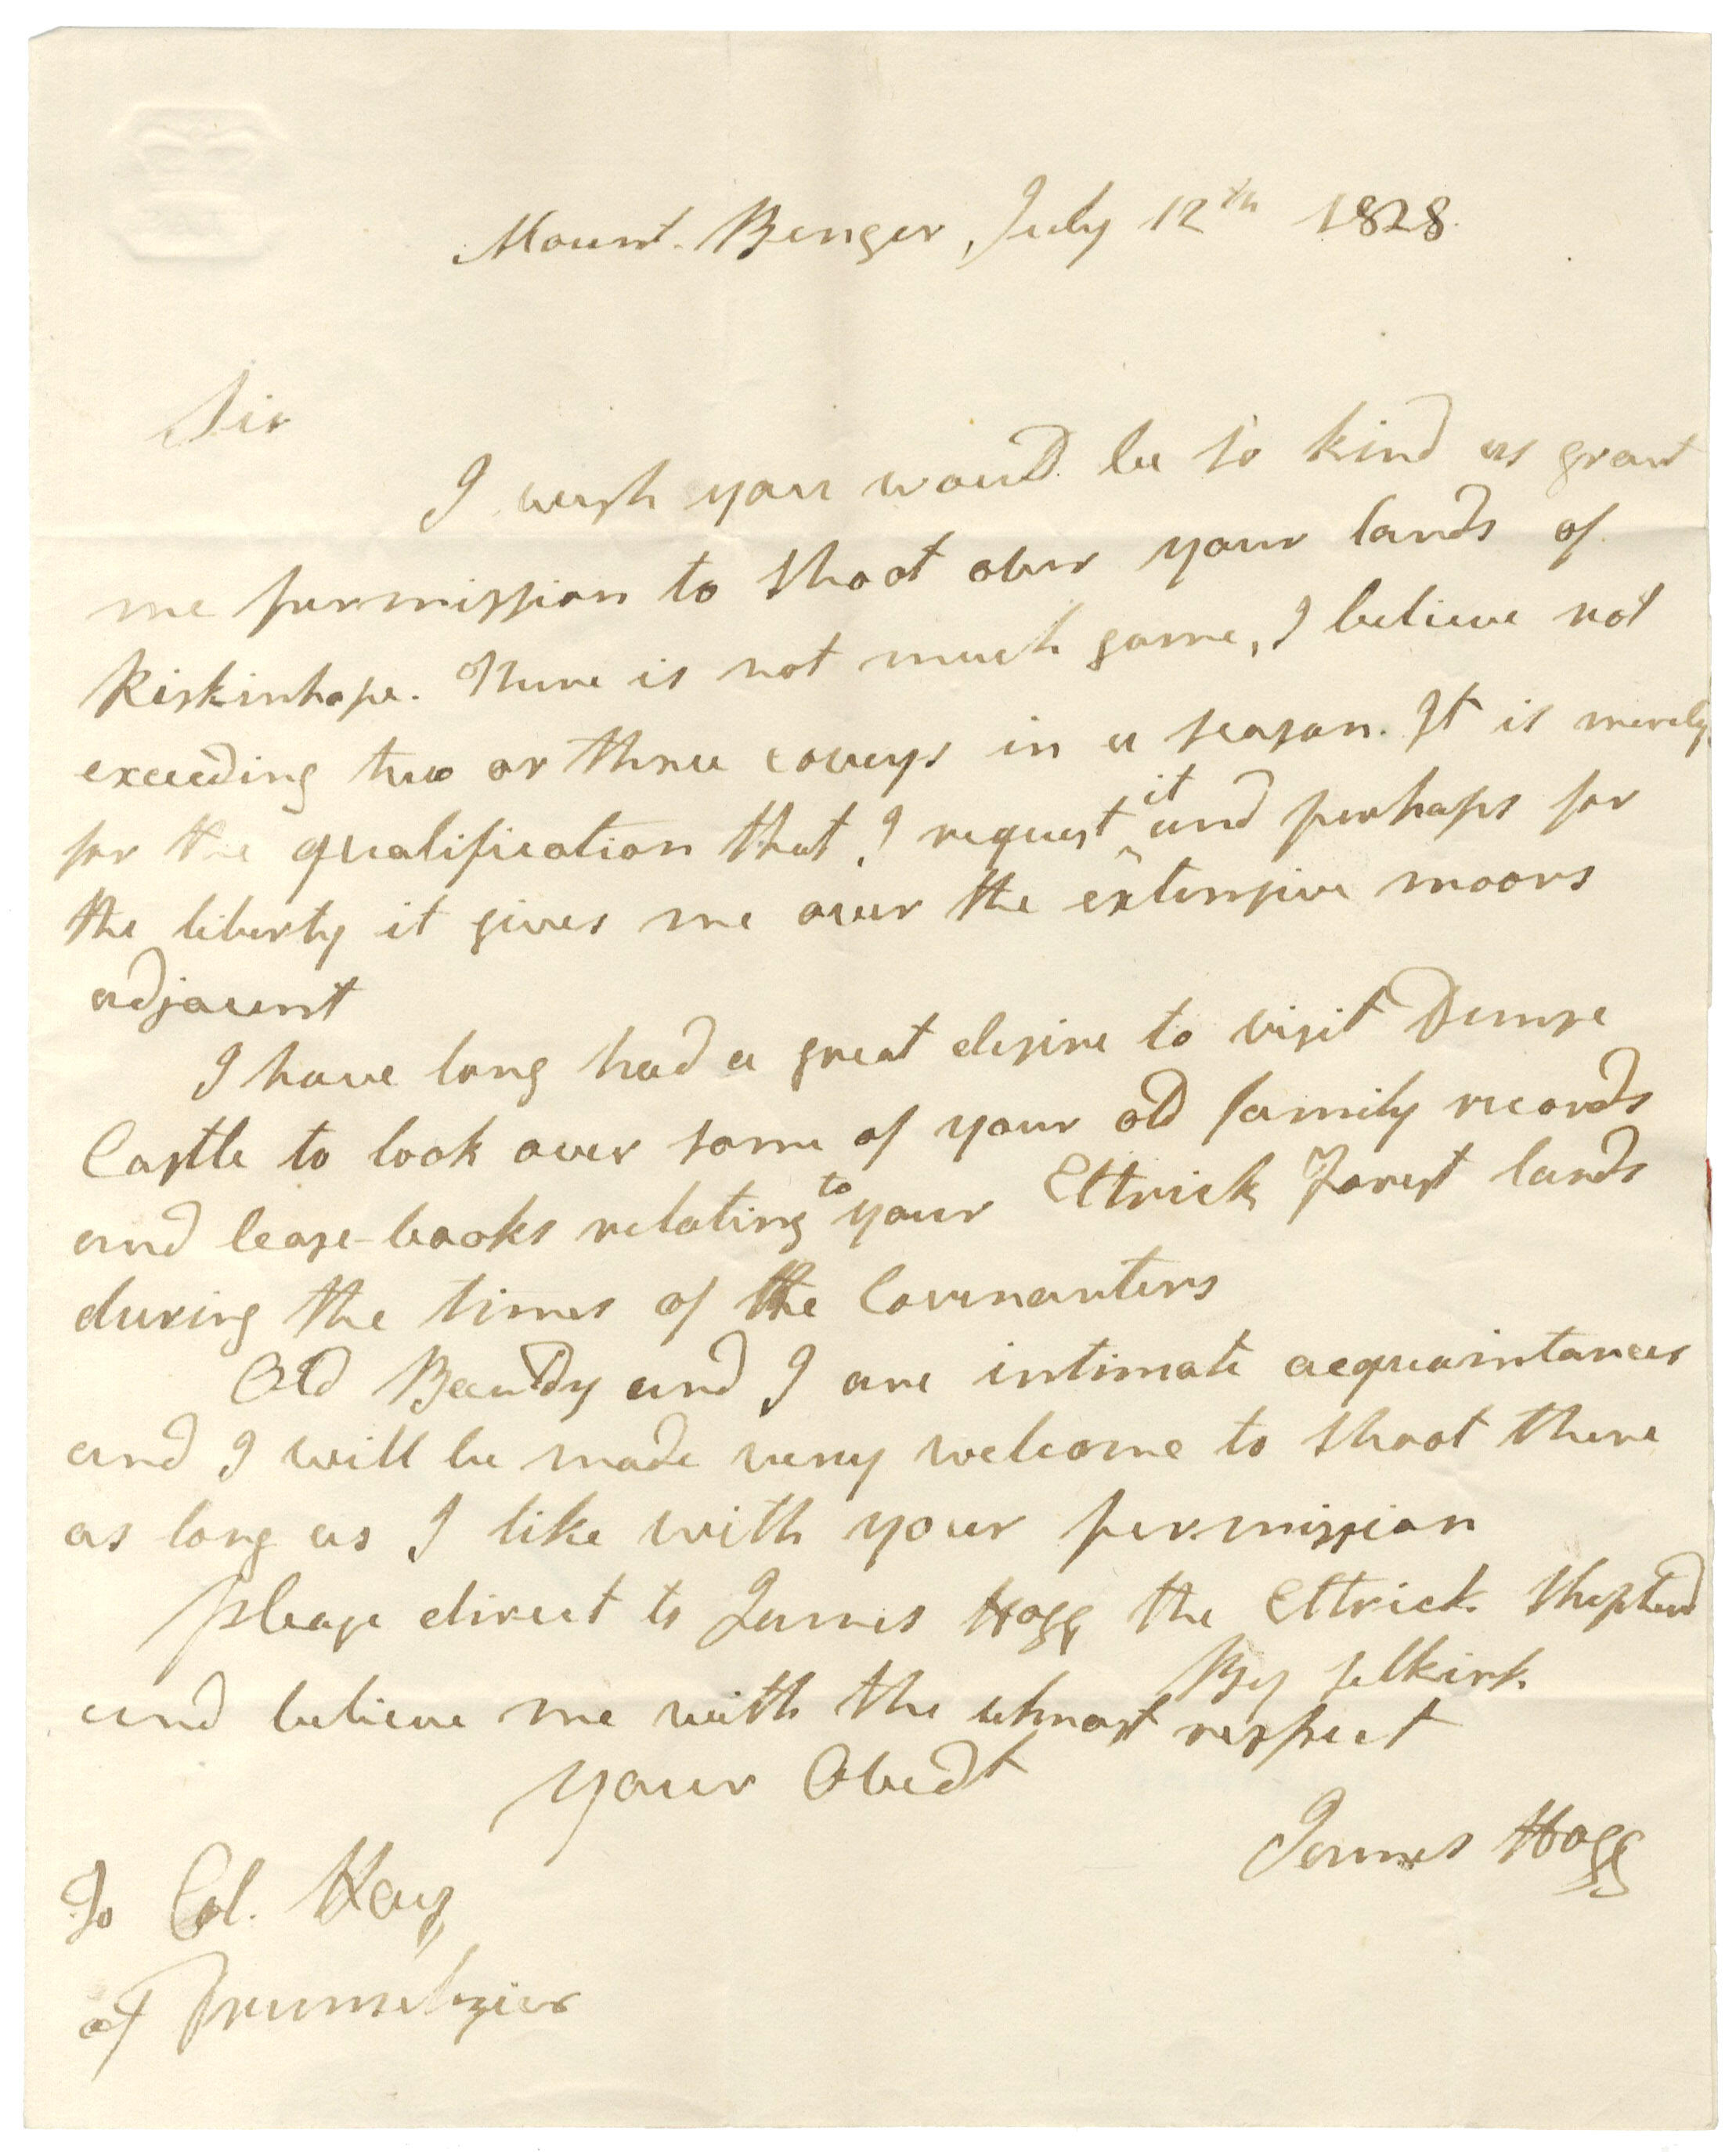 Mount-Benger July 12th 1828.
Sir
I wish you would be so kind as grant
me permission to shoot over your lands of
Riskinhope. There is not much game, I believe not
exceeding two or three coveys in a season. It is merely
for the qualification that I request it and perhaps for
the liberty it gives me over the extensive moors
adjacent
I have long had a great desire to visit Dunse
Castle to look over some of your old family records
and lease-books relating to your Ettrick Forest lands
during the times of the Covenanters
Old and I are intimate acquaintances
and I will be made very welcome to shoot there
as long as I like with your permission
please direct to James Hogg the Ettrick Shepherd
By Selkirk
and believe me with the utmost respect
Your Obedt
James Hogg
To Col. Hay
of Drumelzier